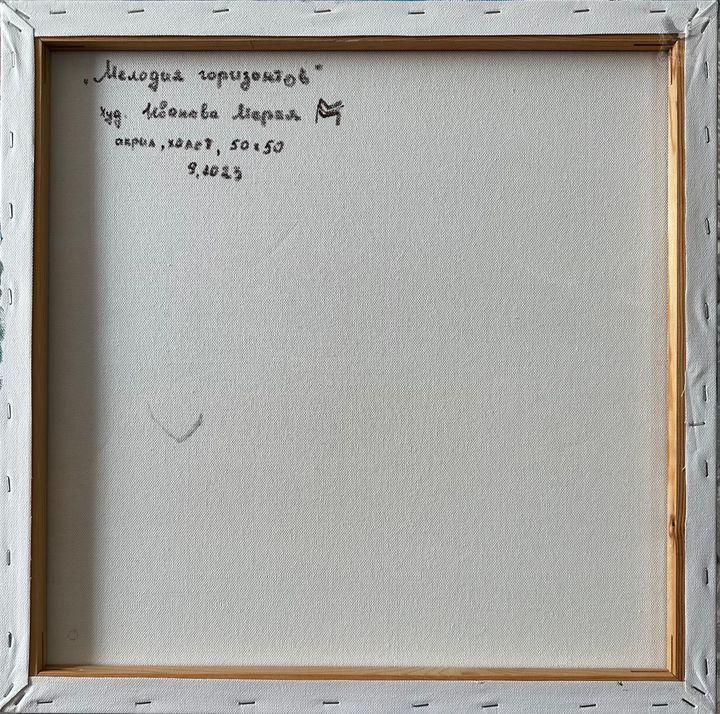 „Мелодия горизонтов"
худ. Иванова Мария
акрил, холст, 50x50
9,2023